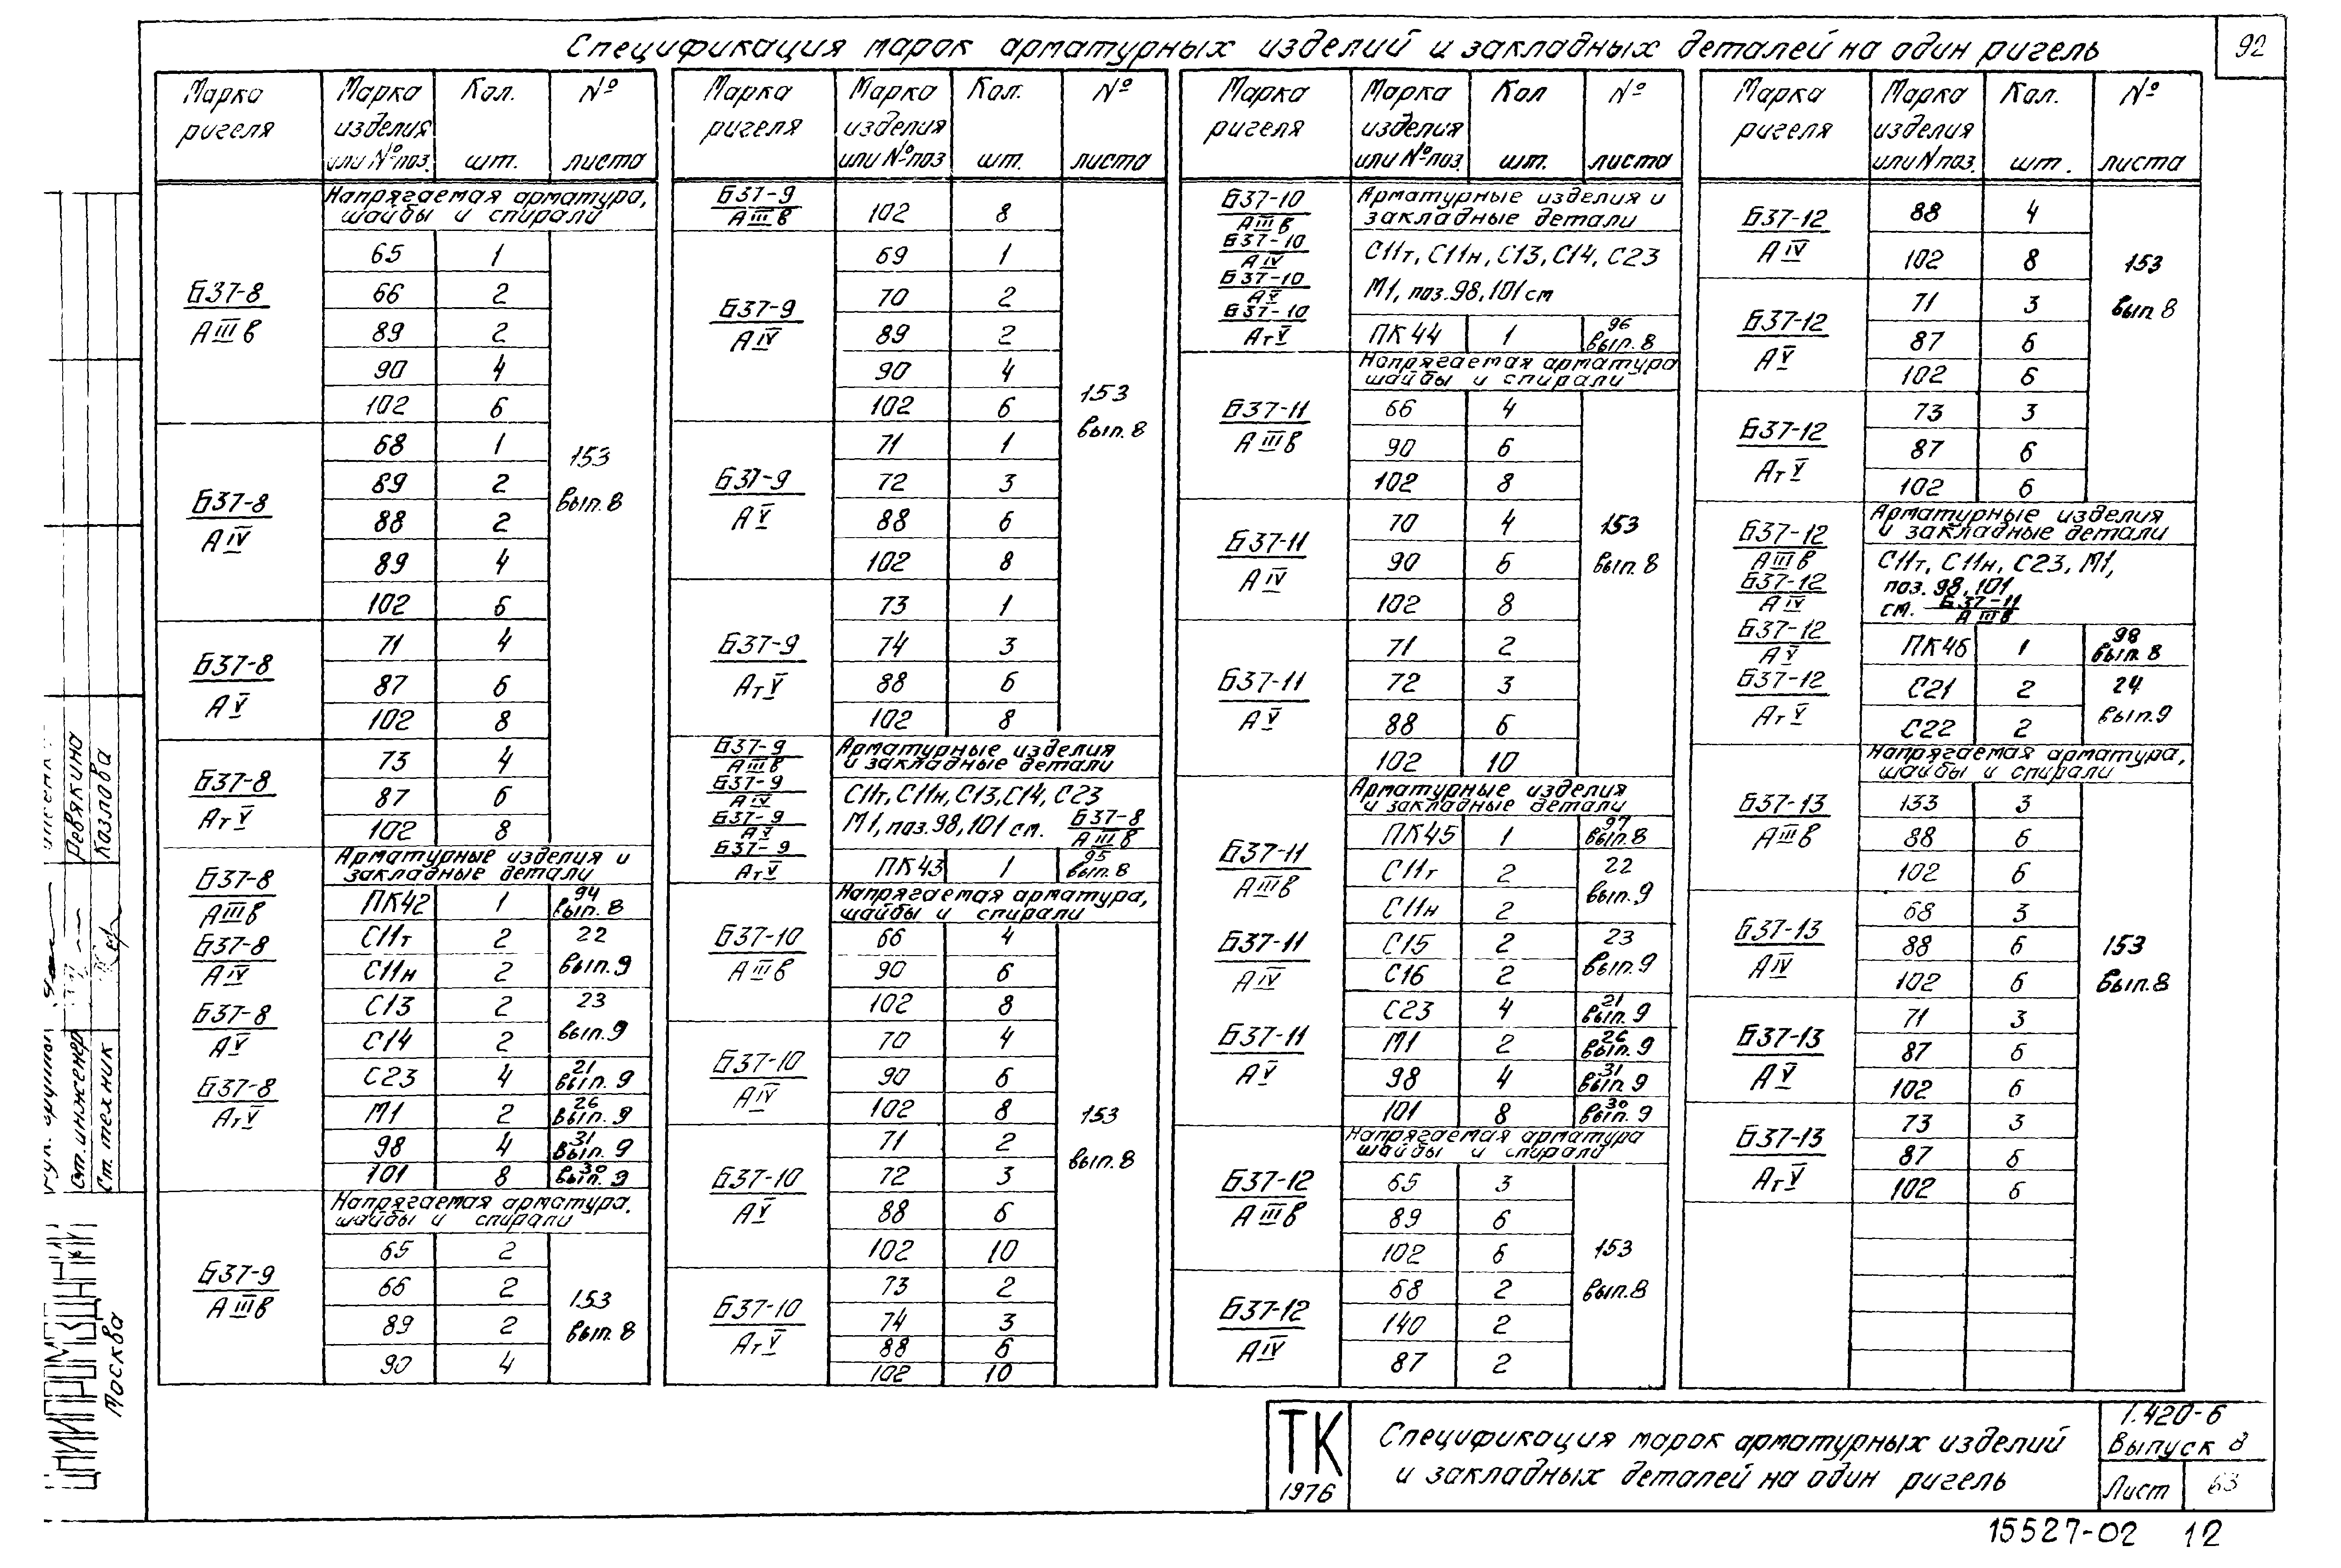 92
Спецификация марок арматурных изделий и закладных деталей на один ригель
Марка ригеля | Марка изделия или № поз. | Кол. шт. | № листа
Напрягаемая арматура, шайбы и спирали
Б37-8 АIIIв | 65 | 1 | 153 вып. 8
66 | 2
89 | 2
90 | 4
102 | 6
Б37-8 АIV | 68 | 1
89 | 2
88 | 2
89 | 4
102 | 6
Б37-8 АV | 71 | 4
87 | 6
102 | 8
Б37-8 АтV | 73 | 4
87 | 6
102 | 8
Арматурные изделия и закладные детали
Б37-8 АIIIв
Б37-8 АIV
Б37-8 АV
Б37-8 АтV
ПК42 | 1 | 94 вып. 8
С11т | 2 | 22 вып. 9
С11н | 2
С13 | 2 | 23 вып. 9
С14 | 2
С23 | 4 | 21 вып. 9
М1 | 2 | 26 вып. 9
98 | 4 | 31 вып. 9
101 | 8 | 30 вып. 9
Напрягаемая арматура, шайбы и спирали
Б37-9 АIIIв | 65 | 2 | 153 вып. 8
66 | 2
89 | 2
90 | 4
Марка ригеля | Марка изделия или № поз | Кол. шт. | № листа
Б37-9 АIIIв | 102 | 8 | 153 вып. 8
Б37-9 АIV | 69 | 1
70 | 2
89 | 2
90 | 4
102 | 6
Б37-9 АV | 71 | 1
72 | 3
88 | 6
102 | 8
Б37-9 АтV | 73 | 1
74 | 3
88 | 6
102 | 8
Арматурные изделия и закладные детали
Б37-9 АIIIв
Б37-9 АIV
Б37-9 АV
Б37-9 АтV
С11т, С11н, С13, С14, С23
М1, поз. 98, 101 см. Б37-8 АIIIв
ПК43 | 1 | 95 вып. 8
Напрягаемая арматура, шайбы и спирали
Б37-10 АIIIв | 66 | 4 | 153 вып. 8
90 | 6
102 | 8
Б37-10 АIV | 70 | 4
90 | 6
102 | 8
Б37-10 АV | 71 | 2
72 | 3
88 | 6
102 | 10
Б37-10 АтV | 73 | 2
74 | 3
88 | 6
102 | 10
Марка ригеля | Марка изделия или № поз | Кол шт. | № листа
Арматурные изделия и закладные детали
Б37-10 АIIIв
Б37-10 АIV
Б37-10 АV
Б37-10 АтV
С11т, С11н, С13, С14, С23
М1, поз. 98, 101 см
ПК44 | 1 | 96 вып. 8
Напрягаемая арматура шайбы и спирали
Б37-11 АIIIв | 66 | 4 | 153 вып. 8
90 | 6
102 | 8
Б37-11 АIV | 70 | 4
90 | 6
102 | 8
Б37-11 АV | 71 | 2
72 | 3
88 | 6
102 | 10
Арматурные изделия и закладные детали
Б37-11 АIIIв
Б37-11 АIV
Б37-11 АV
ПК45 | 1 | 97 вып. 8
С11т | 2 | 22 вып. 9
С11н | 2
С15 | 2 | 23 вып. 9
С16 | 2
С23 | 4 | 21 вып. 9
М1 | 2 | 26 вып. 9
98 | 4 | 31 вып. 9
101 | 8 | 30 вып. 9
Напрягаемая арматура шайбы и спирали
Б37-12 АIIIв | 65 | 3 | 153 вып. 8
89 | 6
102 | 6
Б37-12 АIV | 68 | 2
140 | 2
87 | 2
Марка ригеля | Марка изделия или N поз. | Кол. шт. | № листа
Б37-12 АIV | 88 | 4 | 153 вып. 8
102 | 8
Б37-12 АV | 71 | 3
87 | 6
102 | 6
Б37-12 АтV | 73 | 3
87 | 6
102 | 6
Арматурные изделия и закладные детали
Б37-12 АIIIв
Б37-12 АIV
Б37-12 АV
Б37-12 АтV
С11т, С11н, С23, М1,
поз. 98, 101
см. Б37-11 АIIIв
ПК46 | 1 | 98 вып. 8
С21 | 2 | 24 вып. 9
С22 | 2
Напрягаемая арматура, шайбы и спирали
Б37-13 АIIIв | 133 | 3 | 153 вып. 8
88 | 6
102 | 6
Б37-13 АIV | 68 | 3
88 | 6
102 | 6
Б37-13 АV | 71 | 3
87 | 6
102 | 6
Б37-13 АтV | 73 | 3
87 | 6
102 | 6
Ревякина
Козлова
Ст. инженер
Ст. техник
ЦНИИПРОМЗДАНИЙ
Москва
ТК
1976
Спецификация марок арматурных изделий
и закладных деталей на один ригель
1.420-6
Выпуск 8
Лист 63
15527-02 12